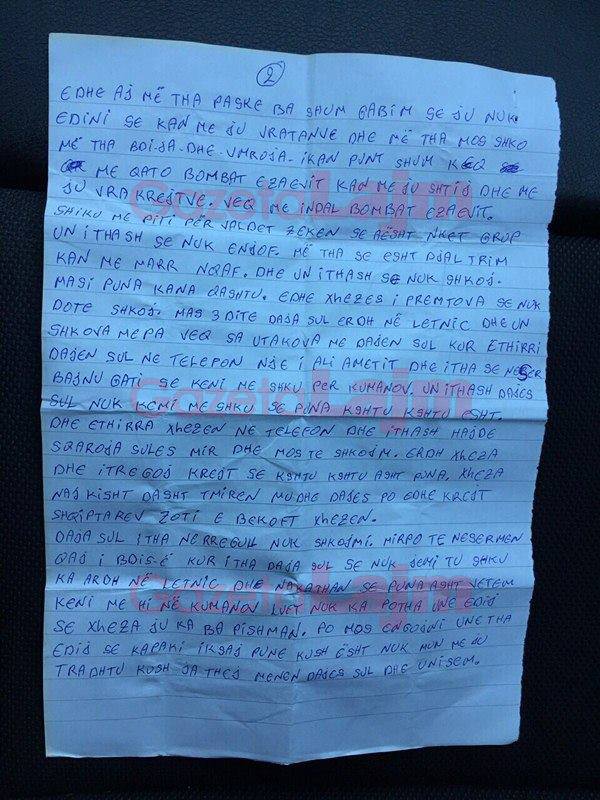 2
EDHE AJ MË THA PASKE BA SHUM GABIM SE JU NUK
EDINI SE KAN ME JU VRATANVE DHE MË THA MOS SHKO
MË THA BDI-JA-DHE-VMROJA-IKAN PUNT SHUM KEQ
ME QATO BOMBAT EZAEVIT KAN ME JU SHTIJ DHE ME
JU VRA KREJTVE. VEQ ME INDAL BOMBAT EZAEVIT.
SHIKU ME PITI PËR VALDET ZEKEN SE AËSHT NKET GRUP
UN ITHASH SE NUK ENJOF. MË THA SE ESHT DJAL TRIM
KAN ME MARR NQAF. DHE UN ITHASH SE NUK SHKOJ.
MASI PUNA KANA QASHTU. EDHE XHEZES I PREMTOVA SE NUK
DOTE SHKOJ. MAS 3 DITE DAJA SUL ERDH NË LETNIC DHE UN
SHKOVA MEPA VEQ SA UTAKOVA ME DAJEN SUL KUR ETHIRRI
DAJEN SUL NE TELEFON NJE I ALI AMETIT DHE ITHA SE NESER
BAJNU GATI SE KENI ME SHKU PER KUMANOV. UN ITHASH DAJES
SUL NUK KEMI ME SHKU SE PUNA KSHTU KSHTU ESHT.
DHE ETHIRRA XHEZEN NE TELEFON DHE ITHASH HAJDE
SQAROJA SULES MIR DHE MOS TE SHKOJM. ERDH XHEZA
DHE ITREGOJ KREJT SE KSHTU KSHTU ASHT PUNA. XHEZA
NAJ KISHT DASHT TMIREN MUDHE DAJES PO EDHE KREJT
SHQIPTAREV ZOTI E BEKOFT XHEZEN.
DAJA SUL ITHA NERREGULL NUK SHKOJMI. MIRPO TE NESERMEN
QAJ I BDIS-Ë KUR ITHA DAJA SUL SE NUK JEMI TU SHKU
KA ARDH NË LETNIC DHE NAKATHAN SE PUNA ASHT VETEM
KENI ME HI NË KUMANOV LUFT NUK KA POTHA UNE EDIJ
SE XHEZA JU KA BA PISHMAN. PO MOS ENGOJNI UNE THA
EDIJ SE KAPAKI IKSAJ PUNE KUSH ËSHT NUK MUN ME JU
TRADHTU KUSH JA THEJ MENEN DAJES SUL DHE UNISEM.
Gazeta Lajm
Gazeta Lajm
Gazeta Lajm